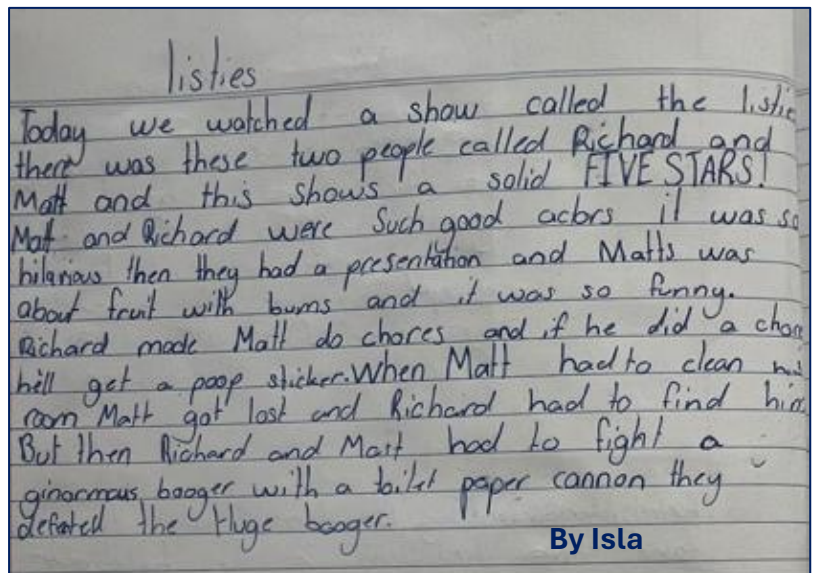 listies
Today we watched a show called the listie
there was these two people called Richard and
Matt and this shows a solid FIVE STARS!
Matt and Richard were Such good actors it was so
hilarious then they had a presentation and Matts was
about fruit with bums and it was so funny.
Richard made Matt do chores and if he did a chore
he'll get a poop sticker. When Matt had to clean his
room Matt got lost and Richard had to find him
But then Richard and Matt had to fight a
ginormous booger with a toilet paper cannon they
defeated the Huge booger.
By Isla